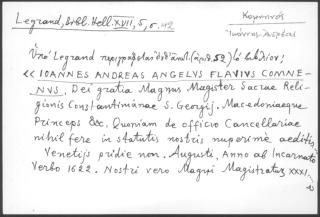 Legrand, bibl. Hell. XVII, 5, σ. 42
Κομνηνός
Ἰωάννης-Ἀνδρέας
Ὑπὸ Legrand περιγράφεται (ἀριθ. 52) τὸ βιβλίον:
« IOANNES ANDREAS ANGELUS FLAVIUS COMNE-
NVS. Dei gratia Magnus Magister Sacrae Reli-
gionis Constantinianae S. Georgij. Macedoniaeque
Princeps &c. Quoniam de officio Cancellariae
nihil fere in statutis nostris nuperime aeditis
Venetijs pridie non. Augusti, Anno ab Incarnato
Verbo 1622. Nostri vero Magni Magistratus XXXI